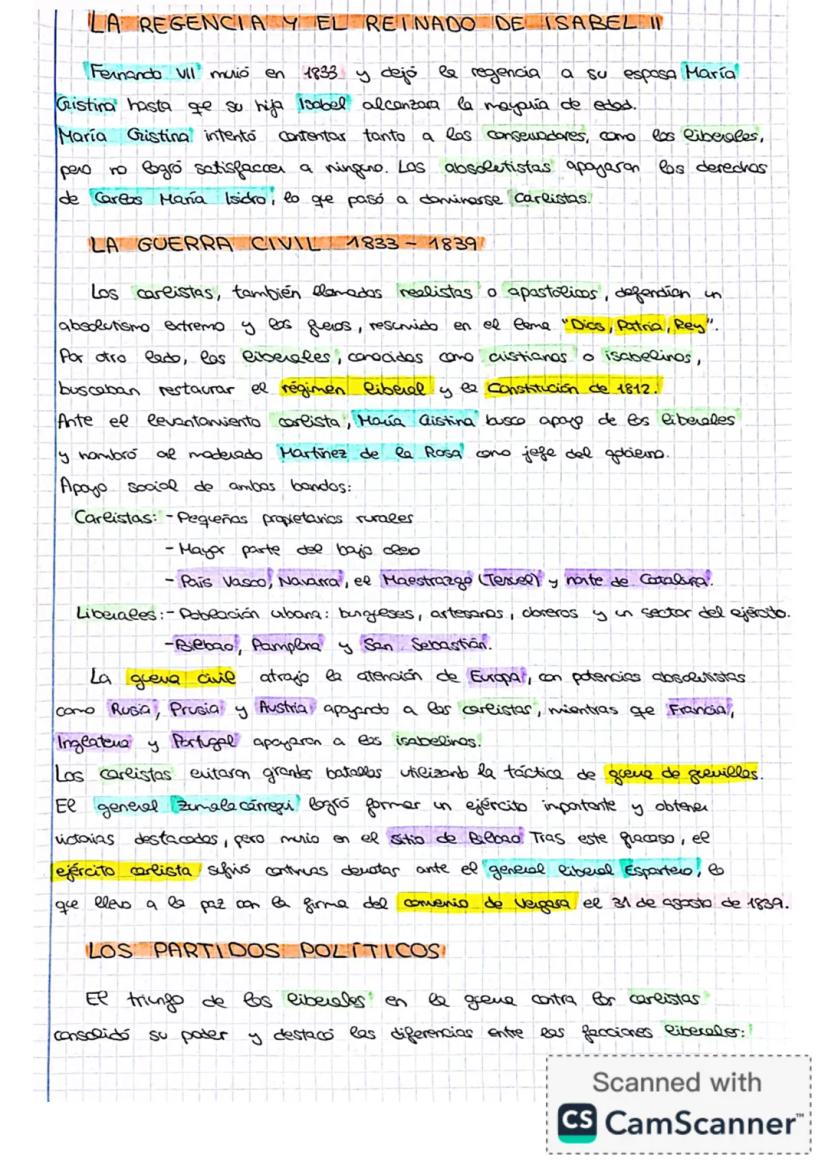 LA REGENCIA Y EL REINADO DE ISABEL II
Fernando VII murió en 1833 y dejó la regencia a su esposa María
Cristina hasta que su hija Isabel alcanzara la mayoría de edad.
María Cristina intentó contentar tanto a los conservadores, como los liberales,
pero no logró satisfaccer a ninguno. Los absolutistas apoyaron los derechos
de Carlos María Isidro, lo que pasó a dominarse Carlistas.
LA GUERRA CIVIL 1833 - 1839
Los carlistas, también llamados realistas o apostólicos, defendían un
absolutismo extremo y los fueros, resumido en el lema "Dios, Patria, Rey".
Por otro lado, los liberales, conocidos como cristianos o isabelinos,
buscaban restaurar el régimen liberal y la Constitución de 1812.
Ante el levantamiento carlista, María Cristina busco apoyo de los liberales
y nombró al moderado Martínez de la Rosa como jefe del gobierno.
Apoyo social de ambos bandos:
Carlistas: - Pequeños propietarios rurales
- Mayor parte del bajo clero
- País Vasco, Navarra, el Maestrazgo (Teruel) y norte de Cataluña.
Liberales: - Población urbana: burgueses, artesanos, obreros y un sector del ejército.
- Bilbao, Pamplona y San Sebastián.
La guerra civil atrajo la atención de Europa, con potencias absolutistas
como Rusia, Prusia y Austria apoyando a los carlistas, mientras que Francia,
Inglaterra y Portugal apoyaron a los isabelinos.
Los carlistas evitaron grandes batallas utilizando la táctica de guerra de guerrillas.
El general Zumalacárregui logró formar un ejército importante y obtener
victorias destacadas, pero murio en el sitio de Bilbao Tras este fracaso, el
ejército carlista sufrió continuas derrotas ante el general liberal Espartero, lo
que llevo a la paz con la firma del convenio de Vergara el 31 de agosto de 1839.
LOS PARTIDOS POLÍTICOS
El triunfo de los liberales en la guerra contra los carlistas
consolidó su poder y destacó las diferencias entre las facciones liberales:
Scanned with
CS CamScanner™